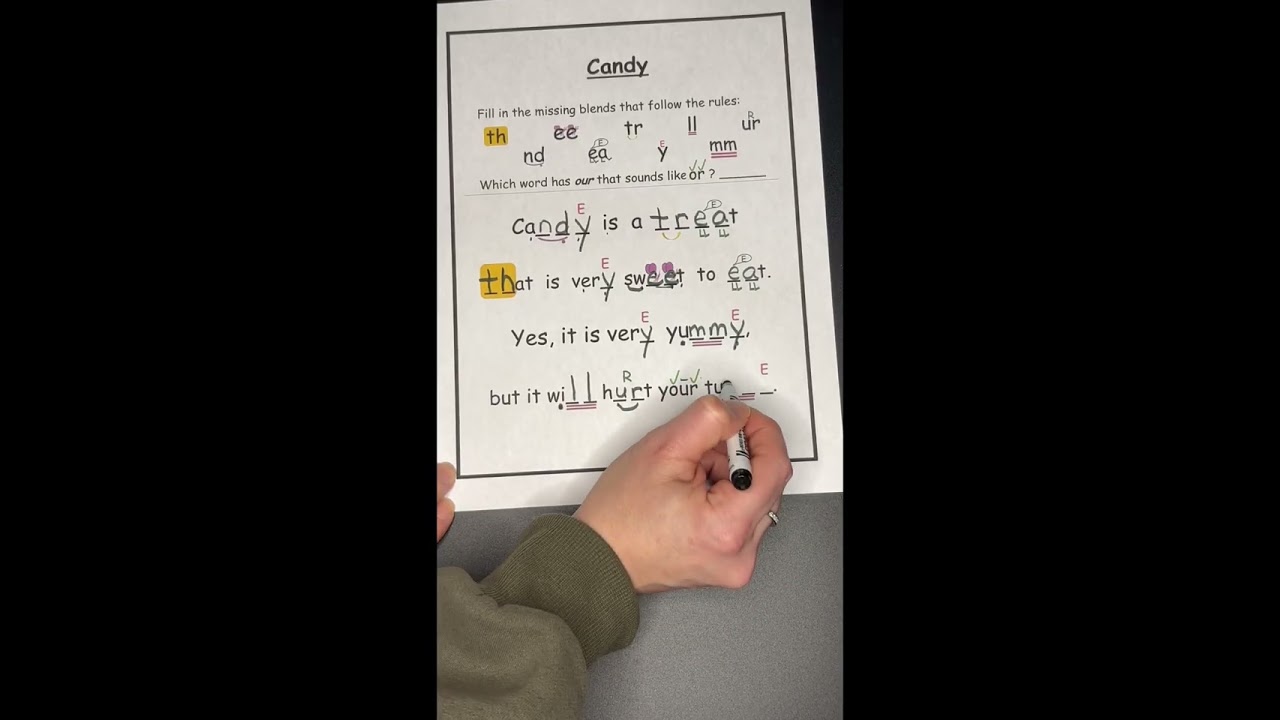 Candy
Fill in the missing blends that follow the rules:
th ee tr ll ur
nd ea y mm
Which word has our that sounds like or ? ______
Candy is a treat
that is very sweet to eat.
Yes, it is very yummy,
but it will hurt your tu_ _.